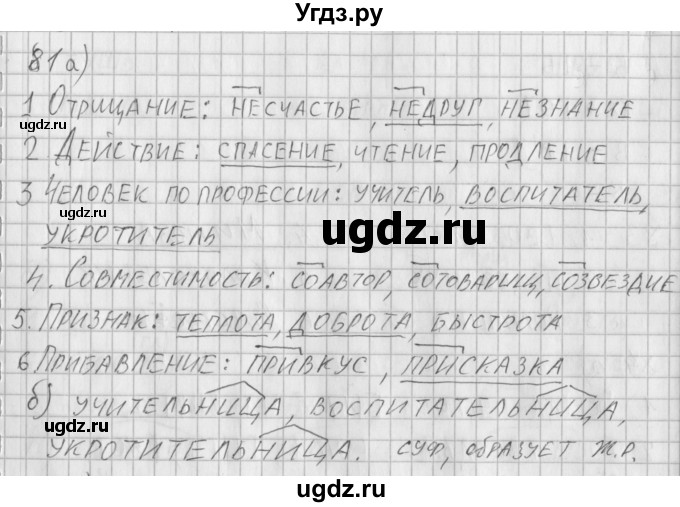 Угдз.ру
81а)
1 Отрицание: несчастье, недруг, незнание
ugdz.ru
2 Действие: спасение, чтение, продление
3 Человек по профессии: учитель, воспитатель,
ugdz.ru
укротитель
ugdz.ru
4. Совместимость: соавтор, сотоварищ, созвездие
ugdz.ru
5. Признак: теплота, доброта, быстрота
6 Прибавление: привкус, присказка
ugdz.ru
ugdz.ru
б) учительница, воспитательница,
укротительница. суф, образует ж.р.
ugdz.ru
ugdz.ru